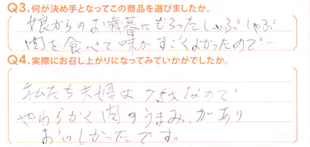 Q3.何が決め手となってこの商品を選びましたか。
娘からのお歳暮にもらったしゃぶしゃぶ
肉を食べて味がすごくよかったので…
Q4.実際にお召し上がりになってみていかがでしたか。
私たち夫婦は75才なので
やわらかく肉のうまみがあり
おいしかったです。